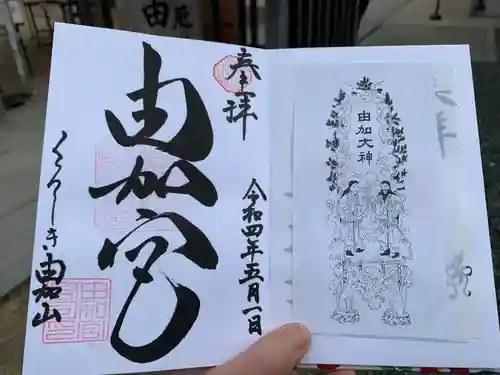 奉拝
令和四年五月一日
由加宮
くらしき 由加山
由加大神
奉拝
由
厄